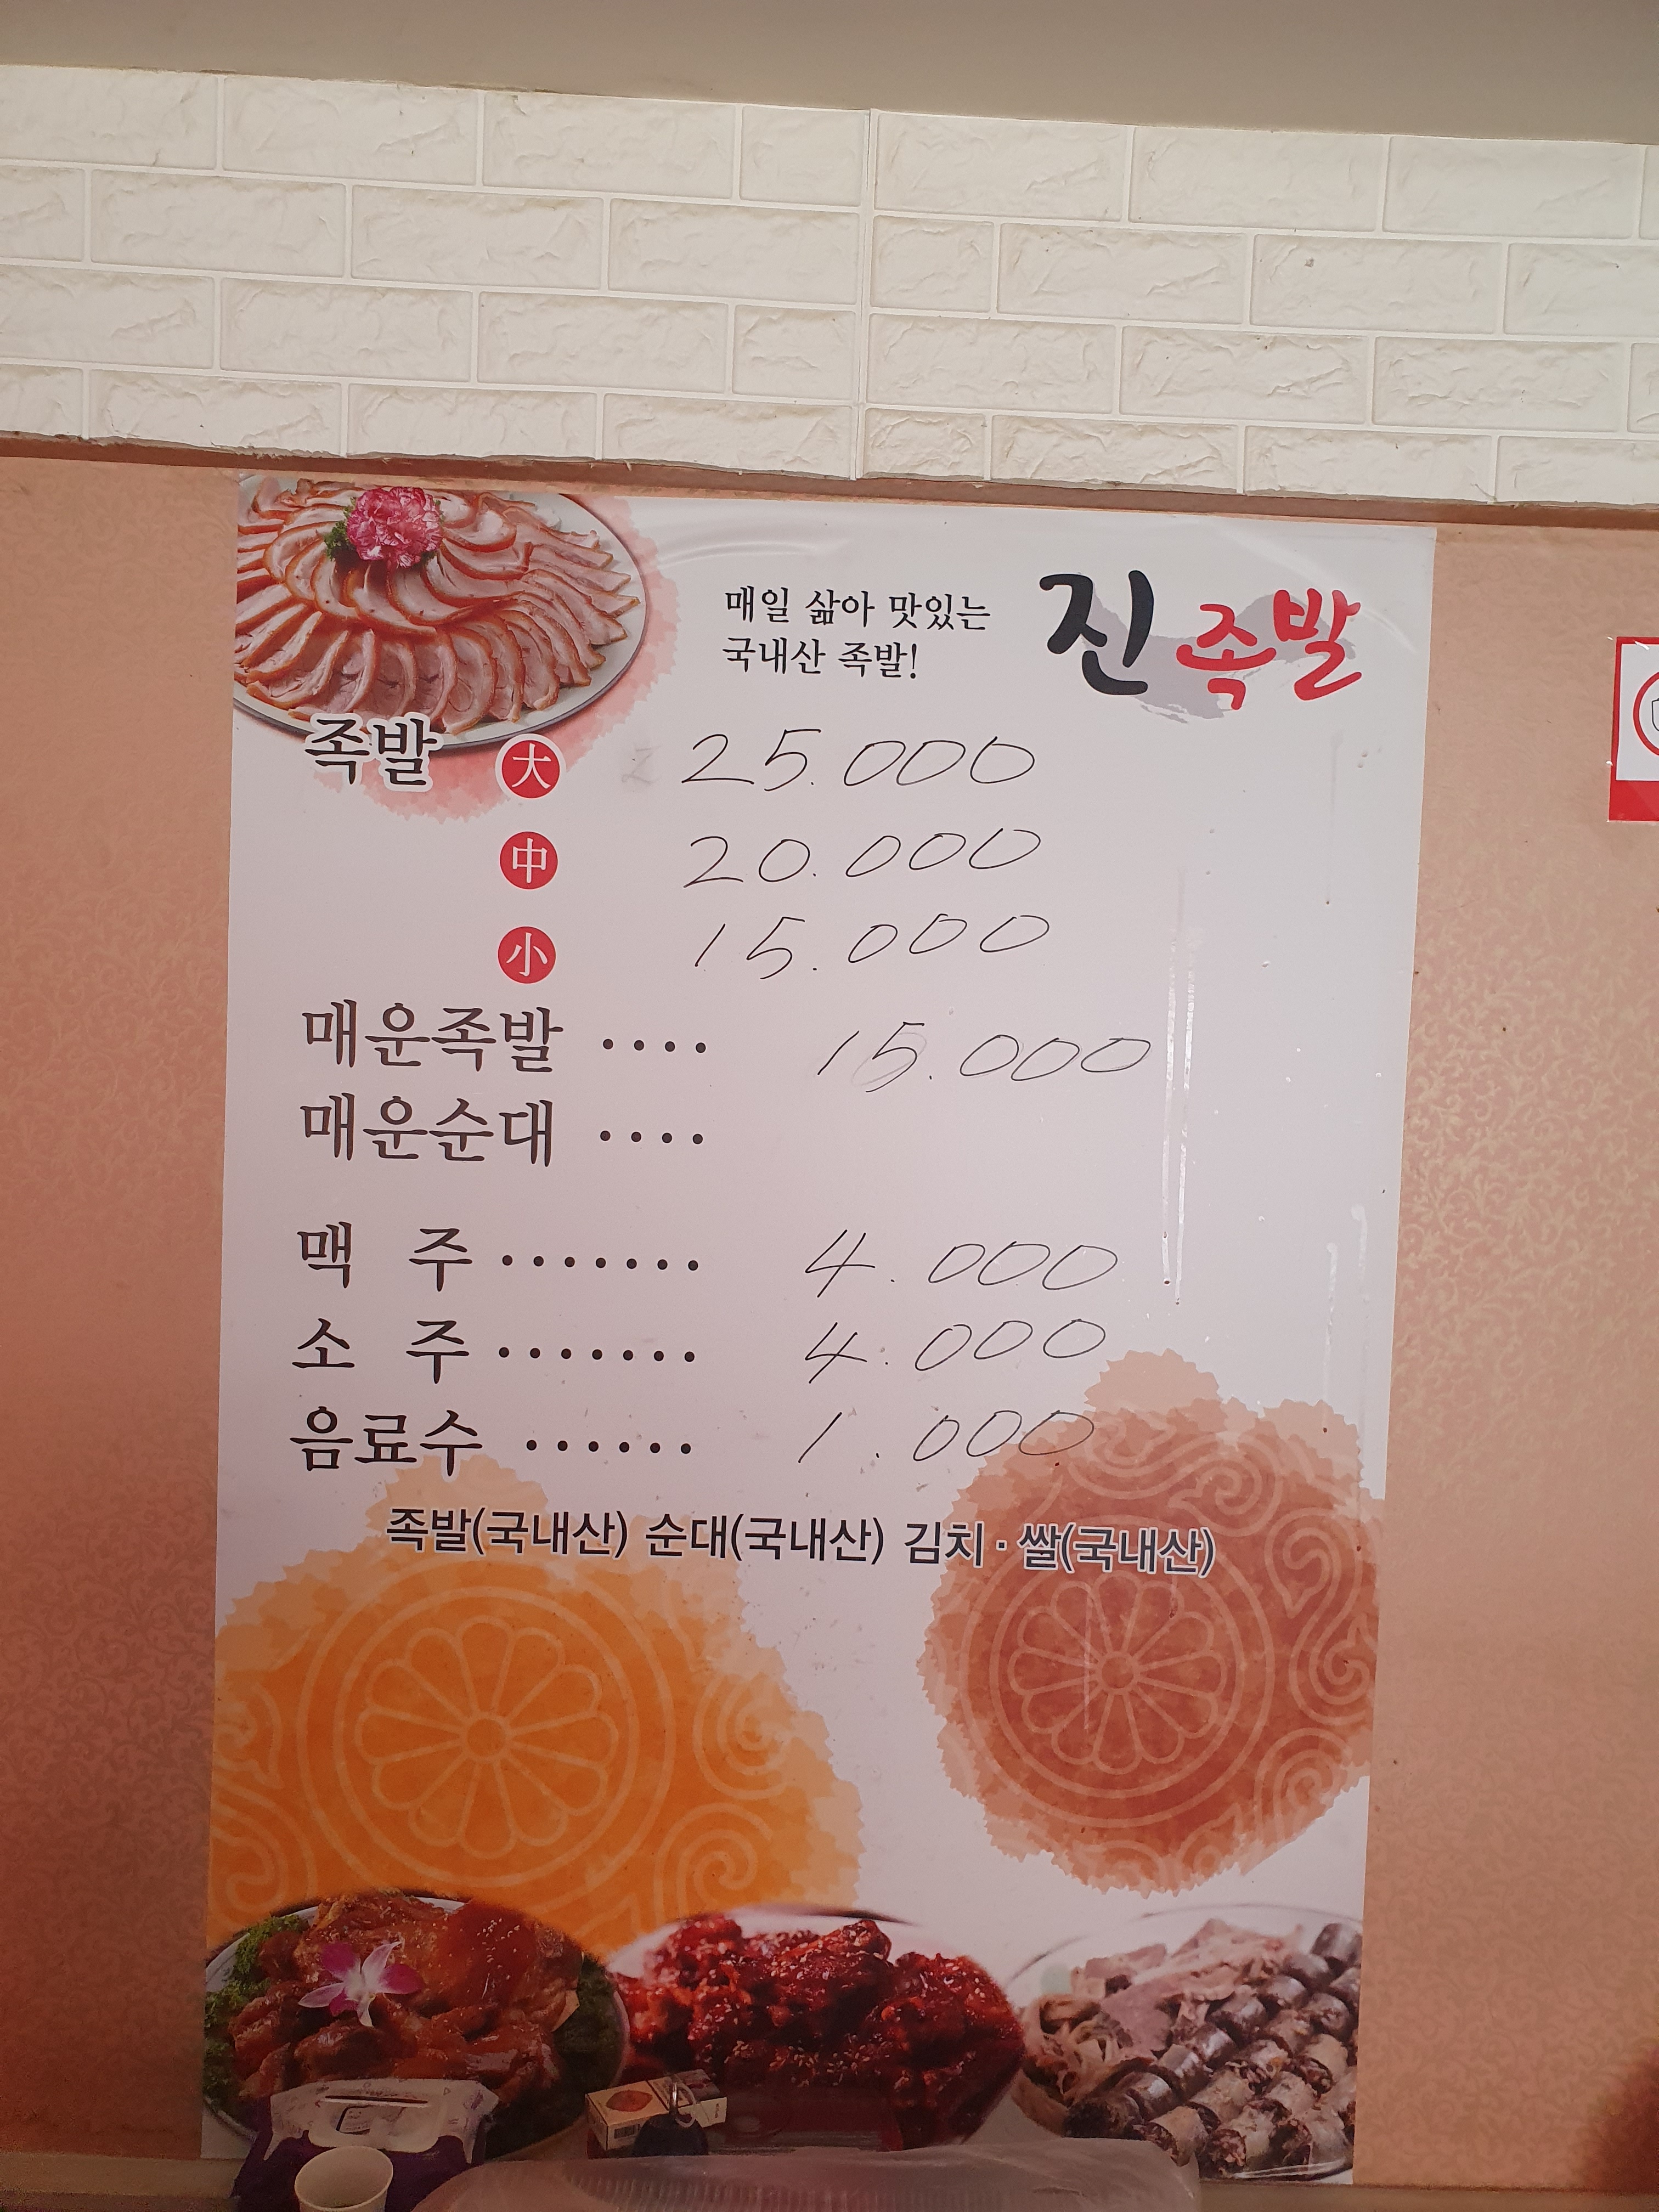 매일 삶아 맛있는
국내산 족발!
진족발
족발 大 25.000
中 20.000
小 15.000
매운족발 ···· 15.000
매운순대 ····
맥 주 ······· 4.000
소 주 ······· 4.000
음료수 ······ 1.000
족발(국내산) 순대(국내산) 김치·쌀(국내산)